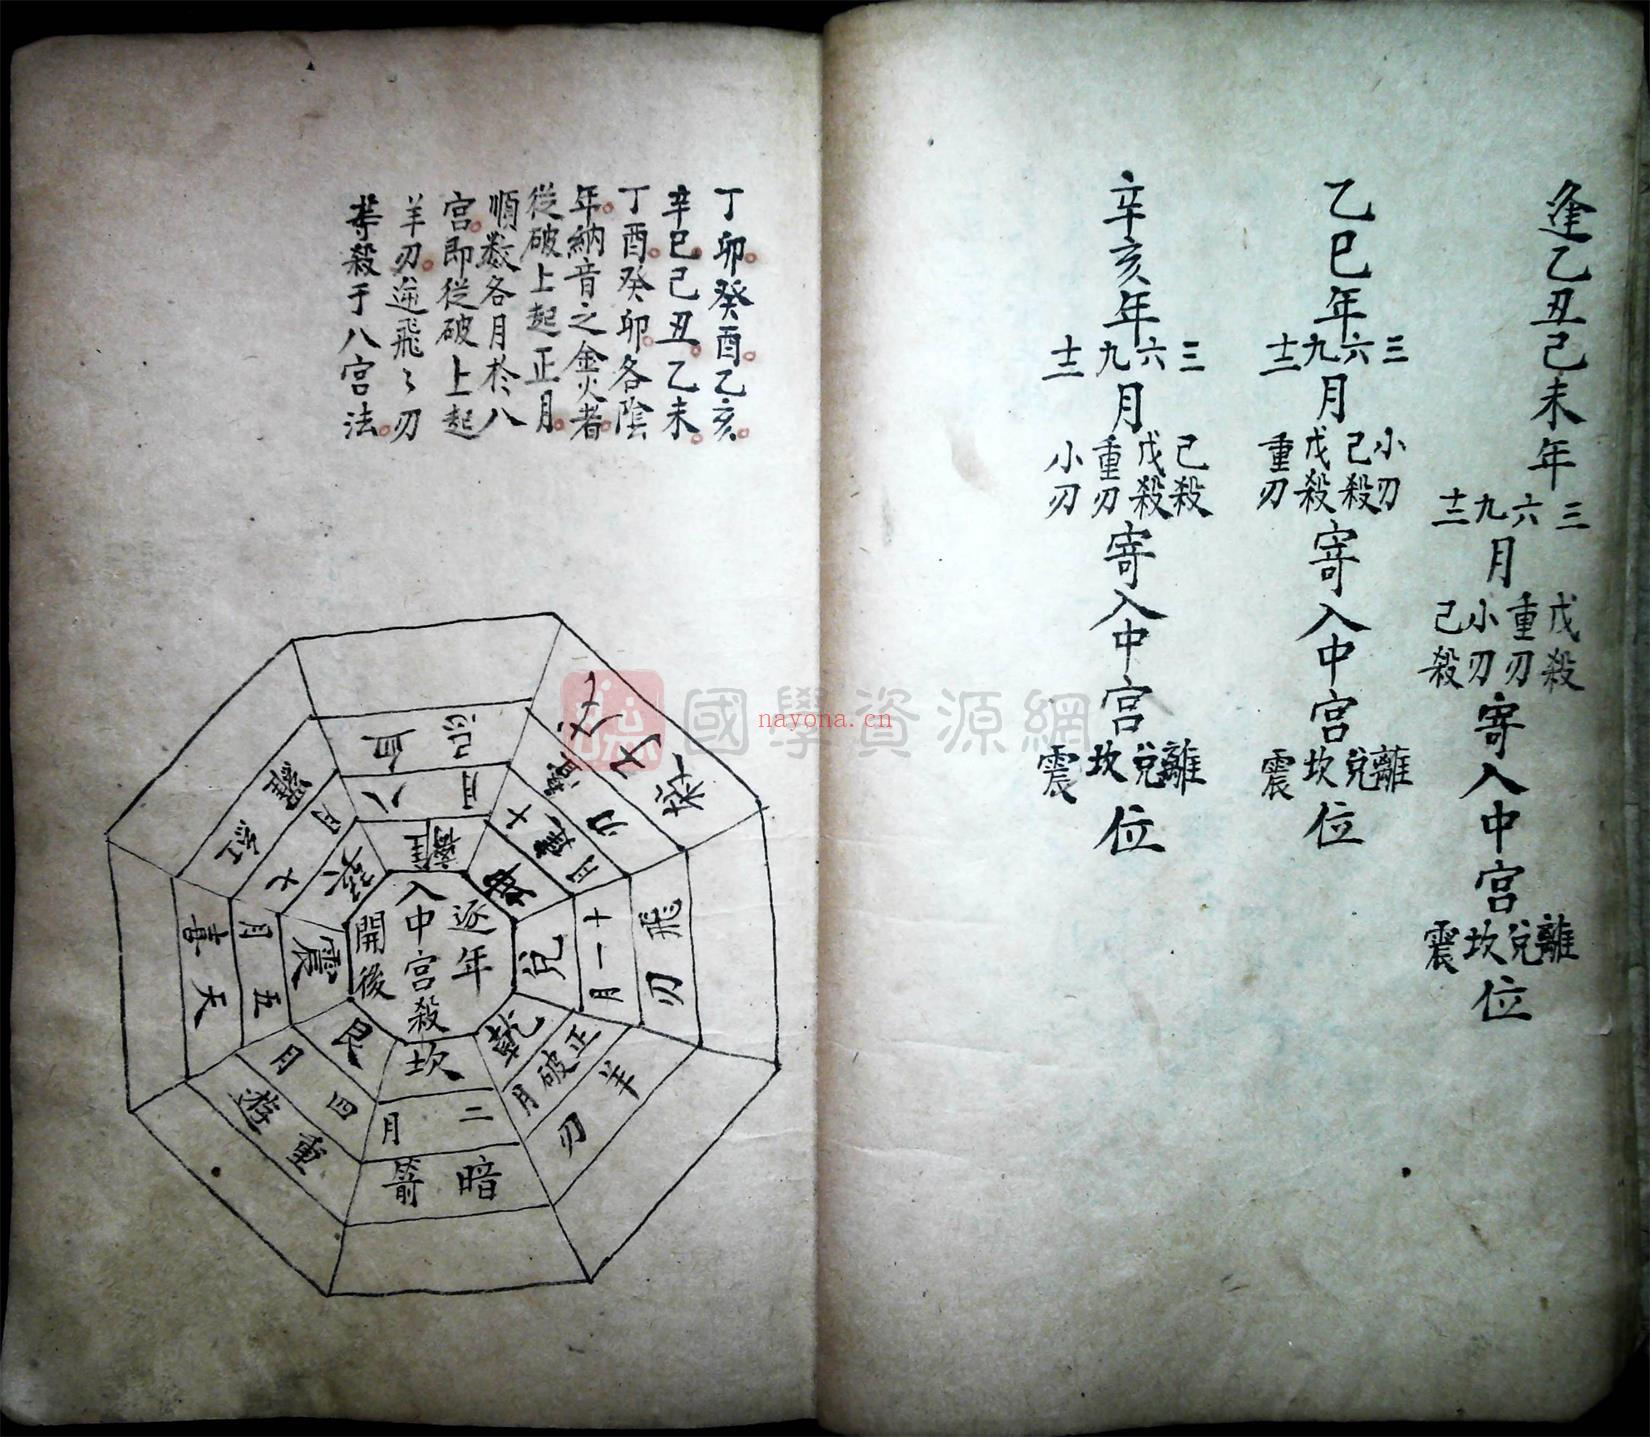 逢乙丑己未年
三六九十二
月
戊殺重刃小刃己殺
寄入中宮
離兌坎震
位
乙巳年
三六九十二
月
小刃己殺戊殺重刃
寄入中宮
離兌坎震
位
辛亥年
三六九十二
月
己殺戊殺重刃小刃
寄入中宮
離兌坎震
位
丁卯癸酉乙亥
辛巳己丑乙未
丁酉癸卯各陰
年納音之金火者
從破上起正月
順數各月於八
宮即從破上起
羊刃遊飛〻刃
等殺于八宮法
逐年
入中宮殺
開後
離
八月
血忌
坤
十月
刃
兌
十一月
飛刃
乾
正月
破
羊刃
坎
二月
暗箭
艮
四月
重遊
震
五月
天喜
巽
七月
紅羅
國學資源網
nayona.cn